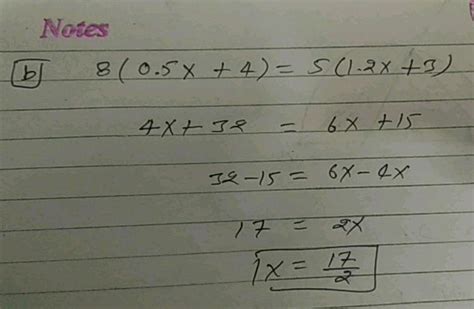 Notes
b 8(0.5x + 4) = 5(1.2x + 3)
4x + 32 = 6x + 15
32 - 15 = 6x - 4x
17 = 2x
x = 17/2